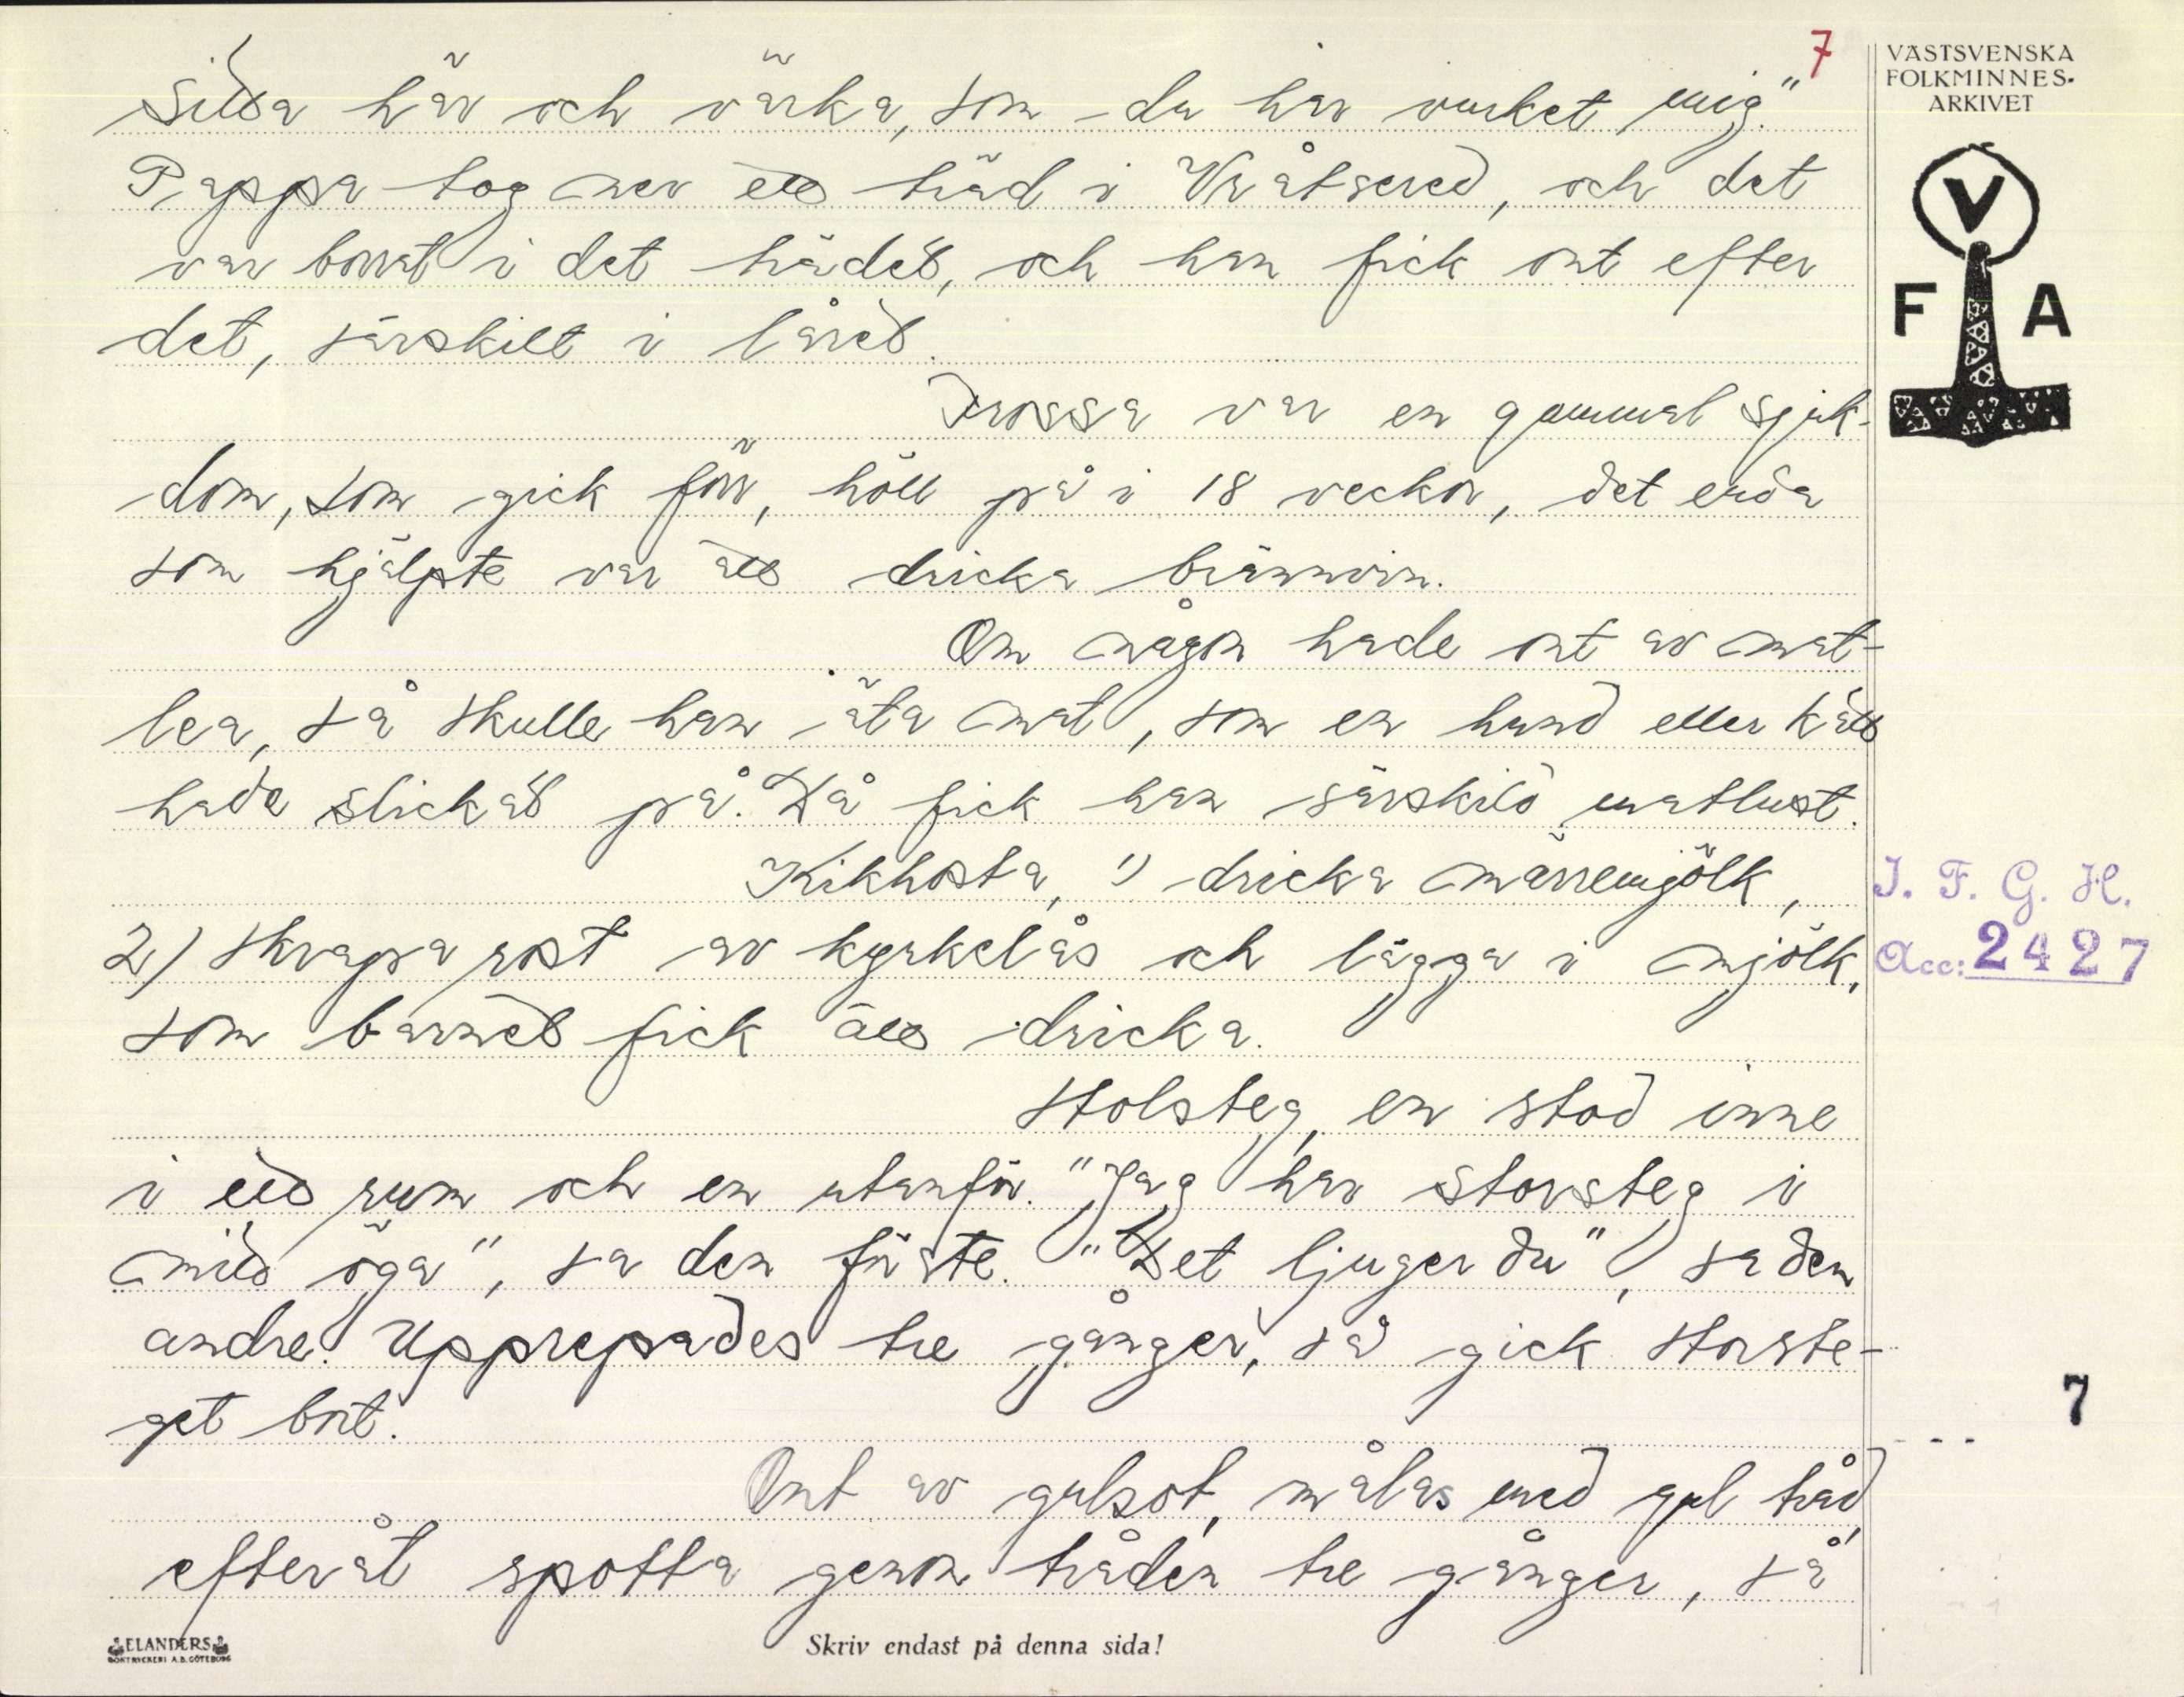 7
sitta här och värka, som du har verket mig."
Pappa tog ner ett träd i Vråtsered, och det
var borrat i det trädet, och han fick ont efter
det, särskilt i låret.
Frossa var en gammal sjuk-
dom, som gick förr, höll på i 18 veckor, det enda
som hjälpte var att dricka brännvin.
Om någon hade ont av mat-
lea, så skulle han äta mat, som en hund eller katt
hade slickat på. Då fick han särskild matlust.
Kikhosta, 1) dricka märremjölk,
2) skrapa rost av kyrkelås och lägga i mjölk,
som barnet fick att dricka.
Stolsteg, en stod inne
i ett rum och en utanför. "Jag har storsteg i
mitt öga", sa den förste. "Det ljuger du", sa den
andre. Upprepades tre gånger, så gick storste-
get bort.
Ont av gulsot, målas med gul tråd,
efteråt spotta genom tråden tre gånger, så
VÄSTSVENSKA
FOLKMINNES-
ARKIVET
V
F A
I. F. G. H.
Acc: 2427
7
ELANDERS
BOKTRYCKERI A.B. GÖTEBORG
Skriv endast på denna sida!